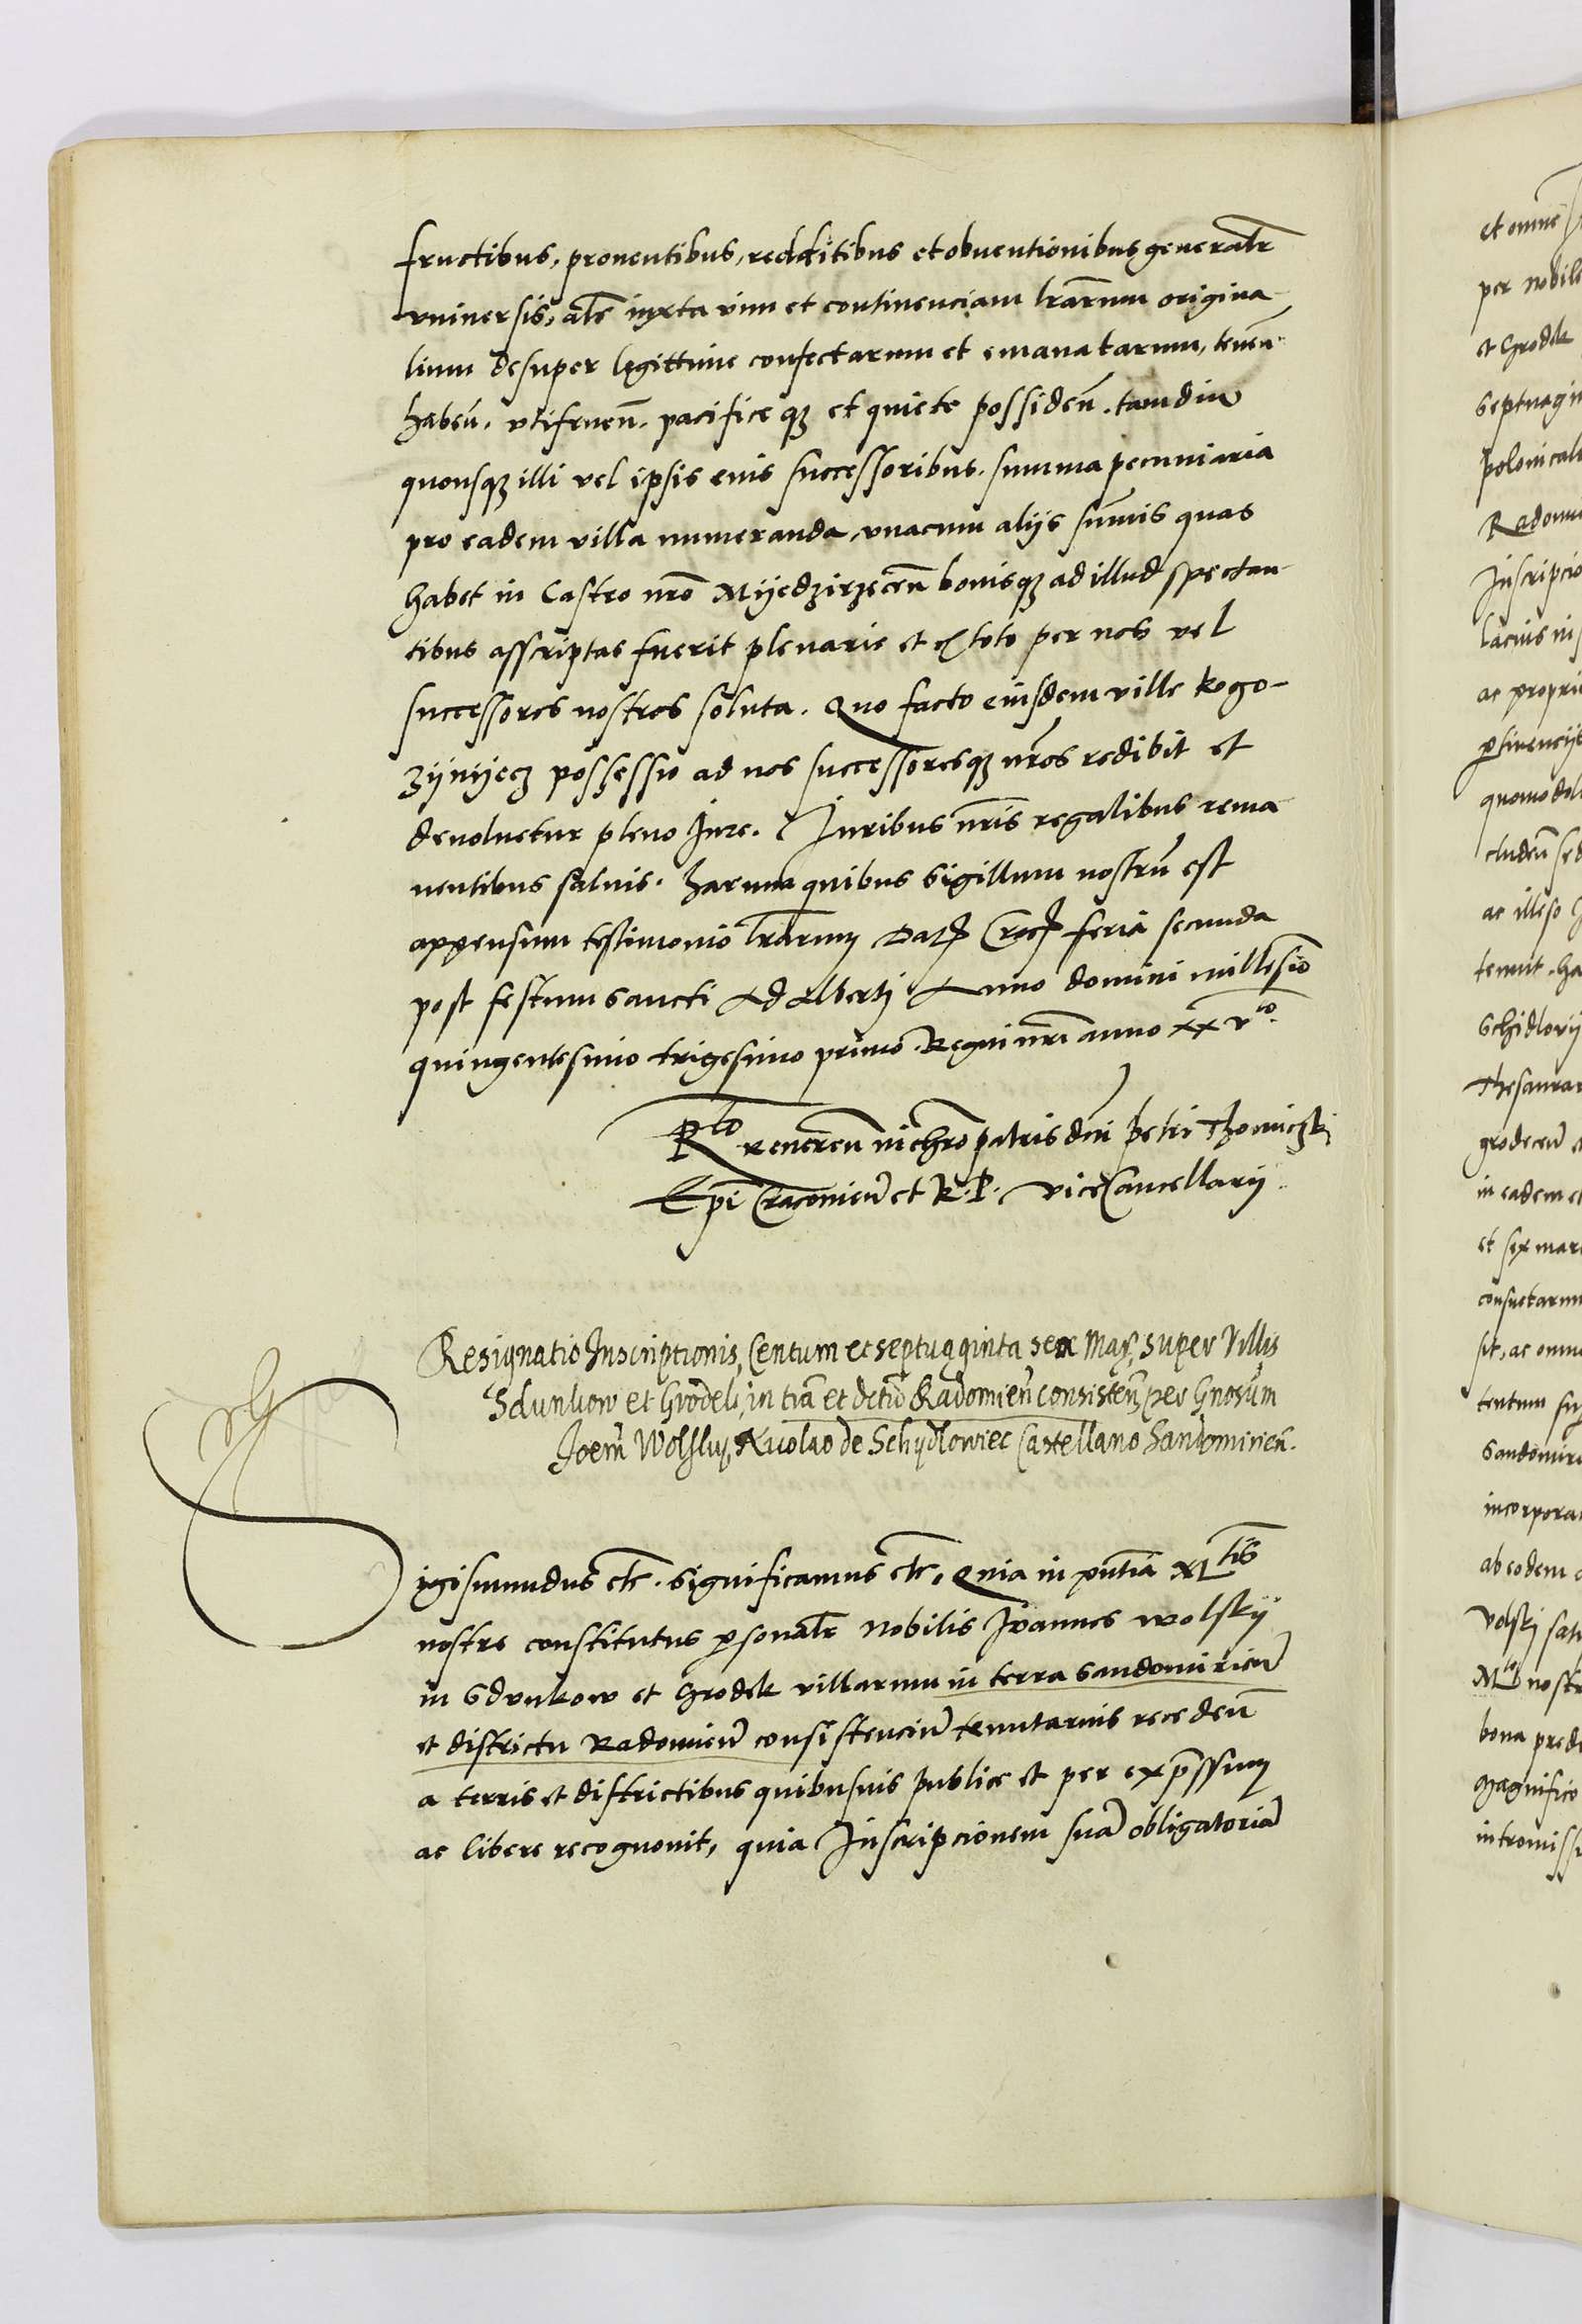 fructibus, proventibus, redditibus et obventionibus generalr̃
universis, alr̃ iuxta vim et continenciam lr̃arum origina-
lium desuper legittime confectarum et emanatarum, teneñ.
habeñ. utifrueñ. pacifice q̨ et quiete possideñ. tamdiu
quousq̨ illi vel ipsis eius successoribus. summa pecuniaria
pro eadem villa numeranda, unacum aliis sum̃is quas
habet in Castro nr̃o Myedzirzeceñ bonisq̨ ad illud spectan-
tibus asscriptas fuerit plenarie et ex toto per nos vel
successores nostros soluta. Quo facto eiusdem ville Rogo-
zynyecz possessio ad nos successoresq̨ nr̃os redibit et
devolvetur pleno Iure. Iuribus nr̃is regalibus rema
nentibus salvis. Harum quibus Sigillum nostrũ est
appensum testimonio lr̃arum Dat̨ Crac̨ feria secunda
post festum sancti Adalberti Anno domini millesiõ
quingentesimo trigesimo primo. Regni nr̃i anno XXV.to
R.tio reverend̃ in chr̃o patris dñi Petri Thomiczki
Ep̃i Cracovieñ et R. P. ViceCancellarii
Resignatio Inscriptionis, Centum et septuaginta sex Mar̨, super Villis
Sdunkow et Grodek, in tr̃a et dct̃u Radomieñ consisteñ, per Gnosum
Joem̃ Wolsky, Nicolao de Schydlowiec Castellano Sandomirieñ.
Sigismundus etc̃. Significamus etc̃. Quia in pñtia M.tis
nostre constitutus p̱sonalr̃ Nobilis Joannes Wolsky
in Sdunkow et Grodek villarum in terra Sandomirieñ
et districtu Radomieñ consistenciũ tenutarius recedeñ
a terris et districtibus quibusvis publice et per exp̃ssum
ac libere recognovit, quia Inscripcionem suã obligatoriã
et omne
per nobile
et Grodek
septuagin
polonicalis
Radomi
Inscripcio
lacius in
ac proprie
p̱tinenciis
quomodoli
cludeñ sed
ac illeso
tenuit. ha
Schidlovy
Thesaurar
grodeceñ
in eadem et
et sex mar
consuetarum
sit, ac omni
tentum su
Sandomire
incorpora
ab eodem
Volsky sati
M.tis nostre
bona predi
Magnifico
intromissi